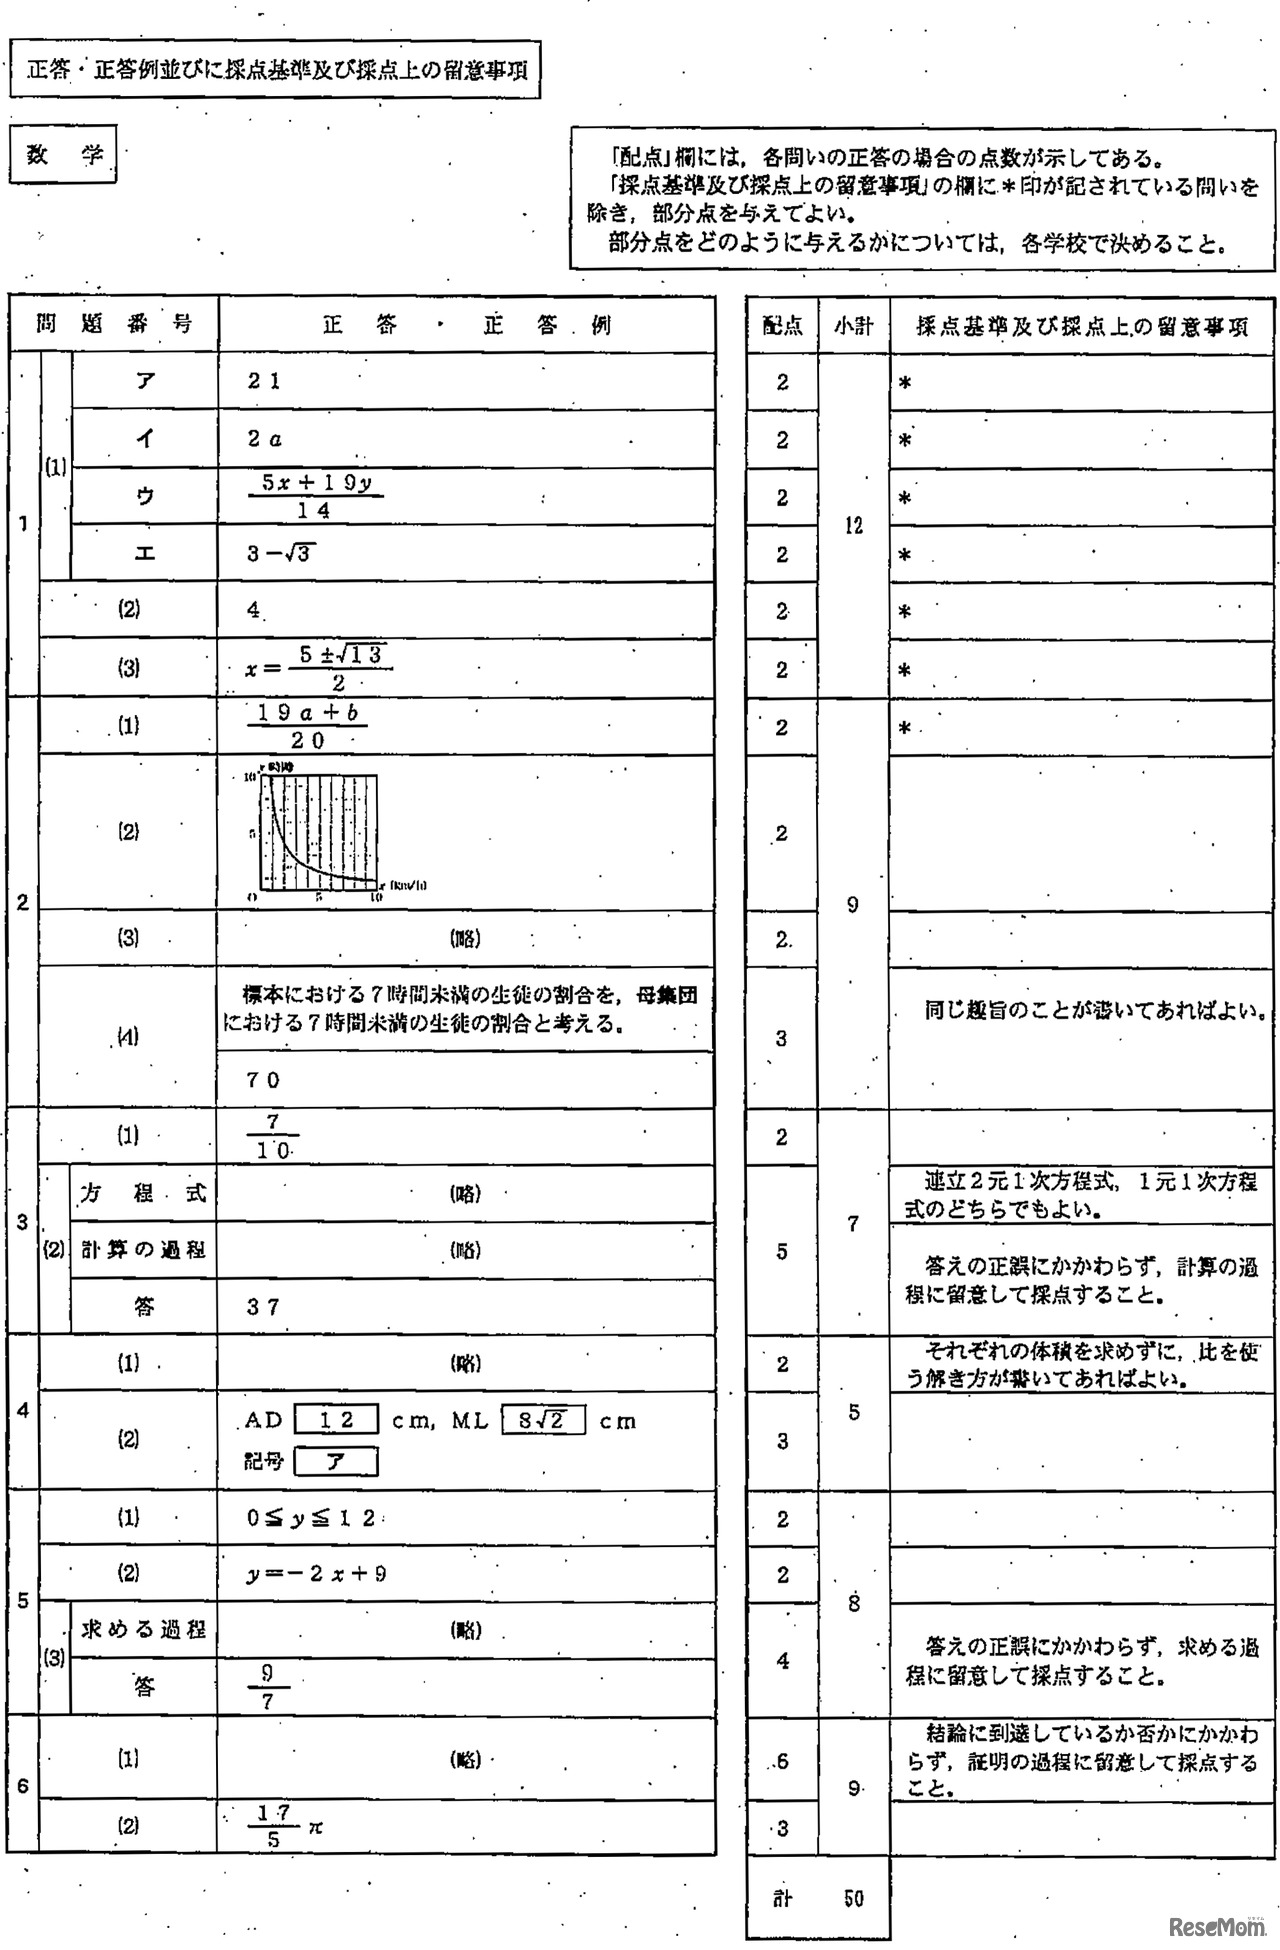 正答・正答例並びに採点基準及び採点上の留意事項
数 学
「配点」欄には，各問いの正答の場合の点数が示してある。
「採点基準及び採点上の留意事項」の欄に＊印が記されている問いを
除き，部分点を与えてよい。
部分点をどのように与えるかについては，各学校で決めること。
問 題 番 号 正 答 ・ 正 答 例 配点 小計 採点基準及び採点上の留意事項
1 (1) ア 21 2 12 ＊
イ 2a 2 ＊
ウ (5x+19y)/14 2 ＊
エ 3−√3 2 ＊
(2) 4 2 ＊
(3) x=(5±√13)/2 2 ＊
2 (1) (19a+b)/20 2 9 ＊
(2) 2
y 時間
10
5
O 5 10 x (km/h)
(3) (略) 2
(4) 標本における7時間未満の生徒の割合を，母集団
における7時間未満の生徒の割合と考える。
3 同じ趣旨のことが書いてあればよい。
70
3 (1) 7/10 2 7
(2) 方 程 式 (略) 5 連立2元1次方程式，1元1次方程
式のどちらでもよい。
計算の過程 (略) 答えの正誤にかかわらず，計算の過
程に留意して採点すること。
答 37
4 (1) (略) 2 5 それぞれの体積を求めずに，比を使
う解き方が書いてあればよい。
(2) AD 12 cm, ML 8√2 cm 3
記号 ア
5 (1) 0≦y≦12 2 8
(2) y=−2x+9 2
(3) 求める過程 (略) 4 答えの正誤にかかわらず，求める過
程に留意して採点すること。
答 9/7
6 (1) (略) 6 9 結論に到達しているか否かにかかわ
らず，証明の過程に留意して採点する
こと。
(2) 17/5 π 3
計 50
ReseMom